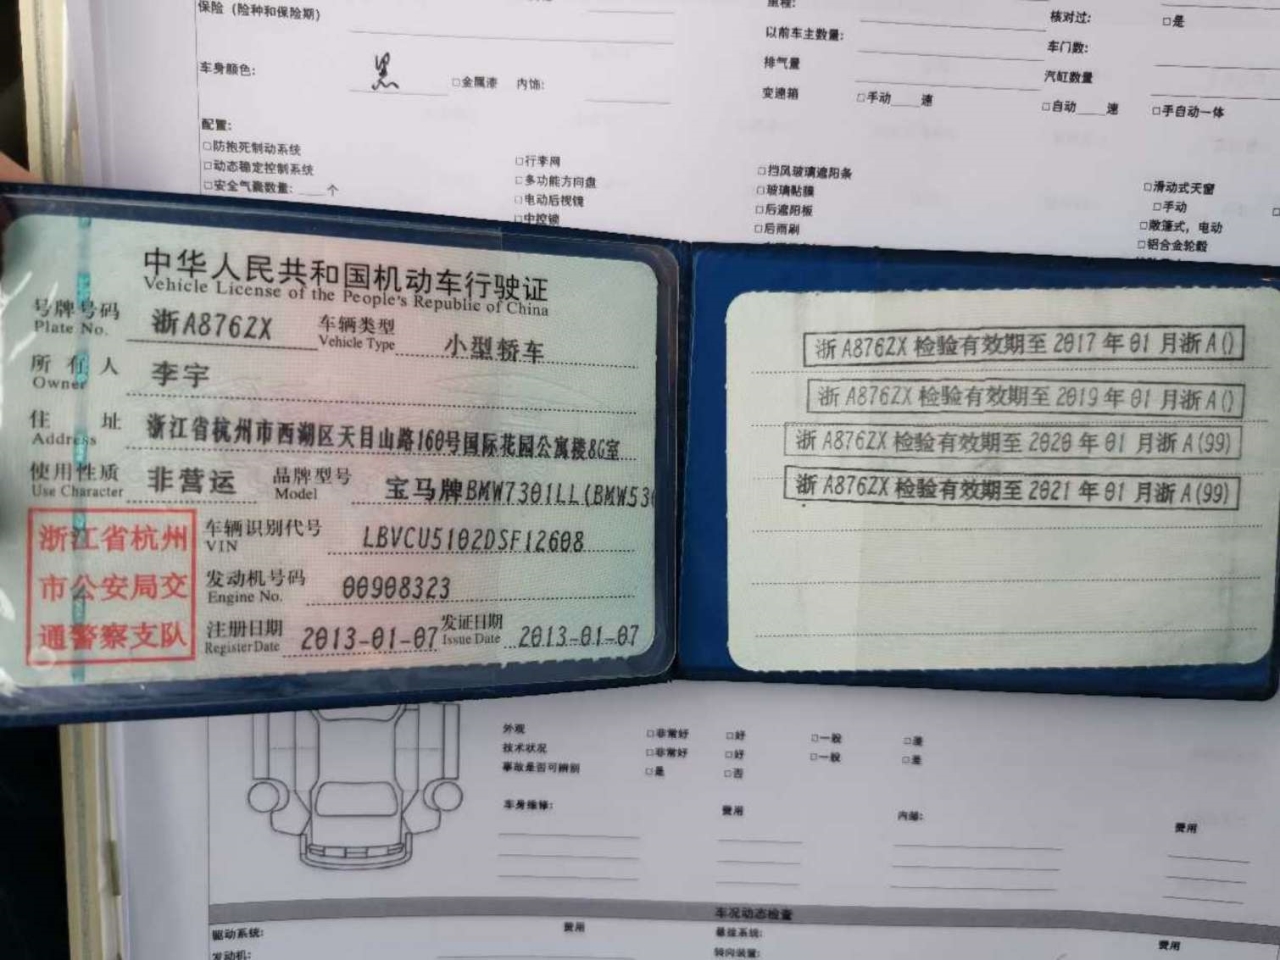 保险（险种和保险期）
核对过: □是
以前车主数量: 车门数:
车身颜色: 黑 □金属漆 内饰: 排气量 汽缸数量
变速箱 □手动 速 □自动 速 □手自动一体
配置:
□防抱死制动系统 □行李网 □挡风玻璃遮阳条 □滑动式天窗
□动态稳定控制系统 □多功能方向盘 □玻璃贴膜 □手动
□安全气囊数量: 个 □电动后视镜 □后遮阳板 □敞篷式，电动
□中控锁 □后雨刷 □铝合金轮毂
中华人民共和国机动车行驶证
Vehicle License of the People's Republic of China
号牌号码 浙A876ZX 车辆类型 小型轿车
Plate No. Vehicle Type
所有人 李宇
Owner
住址 浙江省杭州市西湖区天目山路160号国际花园公寓楼8G室
Address
使用性质 非营运 品牌型号 宝马牌BMW7301LL(BMW53
Use Character Model
浙江省杭州
市公安局交
通警察支队
车辆识别代号 LBVCU5102DSF12608
VIN
发动机号码 00908323
Engine No.
注册日期 2013-01-07 发证日期 2013-01-07
Register Date Issue Date
浙A876ZX检验有效期至2017年01月浙A()
浙A876ZX检验有效期至2019年01月浙A()
浙A876ZX检验有效期至2020年01月浙A(99)
浙A876ZX检验有效期至2021年01月浙A(99)
外观 □非常好 □好 □一般 □差
技术状况 □非常好 □好 □一般 □差
事故是否可辨别 □是 □否
车身维修: 费用 内部: 费用
车况动态检查
驱动系统: 费用 悬挂系统: 费用
发动机: 转向装置: